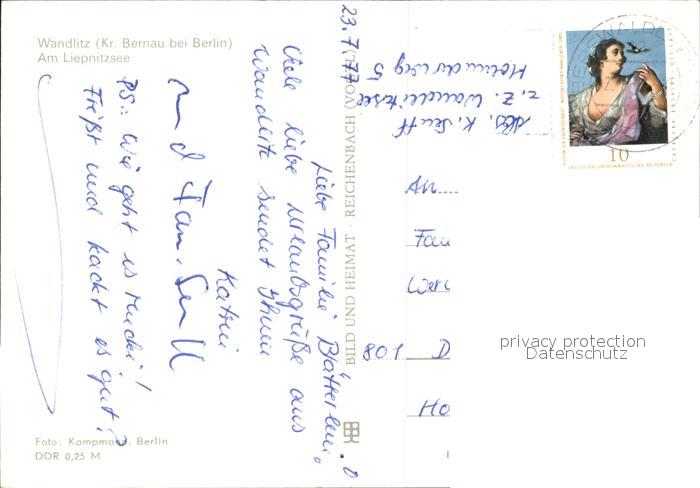 Wandlitz (Kr. Bernau bei Berlin)
Am Liepnitzsee
23.7.77
Liebe Familie Blätterlein!
Viele liebe Urlaubsgrüße aus
Wandlitz sendet Ihnen
Katrin
und Fam. Senff
PS.: Wie geht es Mucki?
Frißt und kackt es gut?
Foto: Kampmann, Berlin
DDR 0,25 M
BILD UND HEIMAT REICHENBACH (VOGTL)
Abs. K. Senff
z. Z. Wandlitzsee
Holunderweg 5
10
DEUTSCHE DEMOKRATISCHE REPUBLIK
An
Fam
Wer
801 D
Ho
privacy protection
Datenschutz